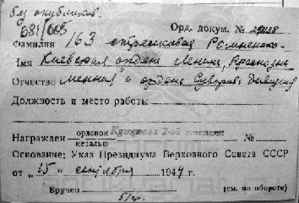 без опубликов.
681/065
Орд. докум. № 29038
Фамилия 163 стрелковая Ромненско-
Имя Киевская ордена Ленина, Краснозна-
Отчество менная и ордена Суворова дивизия
Должность и место работы
Награжден орденом медалью Кутузова 2-ой степени №
Основание: Указ Президиума Верховного Совета СССР
от „15“ сентября 1944 г.
Вручен (см. на обороте)